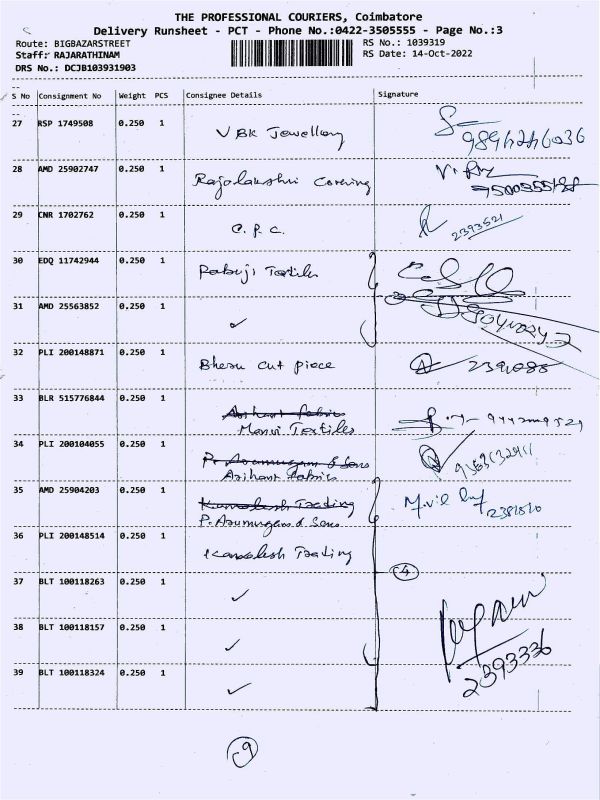 THE PROFESSIONAL COURIERS, Coimbatore
Delivery Runsheet - PCT - Phone No.:0422-3505555 - Page No.:3
Route: BIGBAZARSTREET RS No.: 1039319
Staff: RAJARATHINAM RS Date: 14-Oct-2022
DRS No.: DCJB103931903
S No Consignment No Weight PCS Consignee Details Signature
27 RSP 1749508 0.250 1 VBK Jewellery
28 AMD 25902747 0.250 1 Rajalakshmi Covering
29 CNR 1702762 0.250 1 C.P.C. 2393521
30 EDQ 11742944 0.250 1 Textiles
31 AMD 25563852 0.250 1 ✓
32 PLI 200148871 0.250 1 cut piece
33 BLR 515776844 0.250 1 Arihant fabrics
Textiles
34 PLI 200104055 0.250 1 P. Arumugam & Sons
Arihant fabrics
35 AMD 25904203 0.250 1 Kamalesh Trading
P. Arumugam & Sons
36 PLI 200148514 0.250 1 Kamalesh Trading
4
37 BLT 100118263 0.250 1 ✓
38 BLT 100118157 0.250 1 ✓
39 BLT 100118324 0.250 1 ✓
2393336
9